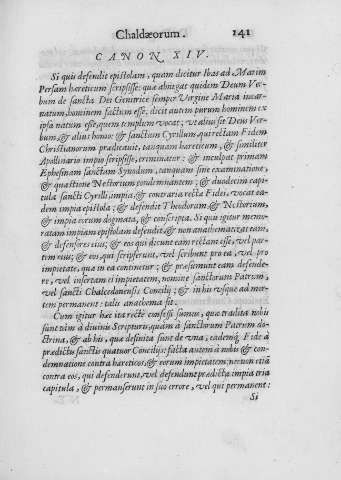 Chaldæorum. 141
CANON XIV.
Si quis defendit epistolam, quam dicitur Ibas ad Marim
Persam hæreticum scripsisse: quæ abnegat quidem Deum Ver-
bum de sancta Dei Genitrice semper Virgine Maria incar-
natum, hominem factum esse: dicit autem purum hominem ex
ipsa natum esse, quem templum vocat; vt alius sit Deus Ver-
bum, & alius homo: & sanctum Cyrillum, qui rectam Fidem
Christianorum prædicauit, tanquam hæreticum, & similiter
Apollinario impio scripsisse, criminatur: & inculpat primam
Ephesinam sanctam Synodum, tanquam sine examinatione,
& quæstione Nestorium condemnantem; & duodecim capi-
tula sancti Cyrilli impia, & contraria rectæ Fidei, vocat ea-
dem impia epistola; & defendit Theodorum, & Nestorium,
& impia eorum dogmata, & conscripta. Si quis igitur memo-
ratam impiam epistolam defendit, & non anathematizat eam,
& defensores eius; & eos qui dicunt eam rectam esse, vel par-
tem eius; & eos, qui scripserunt, vel scribunt pro ea, vel pro
impietate, quæ in ea continetur; & præsumunt eam defende-
re, vel insertam ei impietatem, nomine sanctorum Patrum,
vel sancti Chalcedonensis Concilij; & in his vsque ad mor-
tem permanent: talis anathema sit.
Cum igitur hæc ita rectè confessi sumus, quæ tradita nobis
sunt tàm à diuinis Scripturis, quàm à sanctorum Patrum do-
ctrina, & ab his, quæ definita sunt de vna, eademq; Fide à
prædictis sanctis quatuor Concilijs: facta autem à nobis & con-
demnatione contra hæreticos, & eorum impietatem: necnon etiã
contra eos, qui defenderunt, vel defendunt prædicta impia tria
capitula, & permanserunt in suo errore, vel qui permanent:
Si